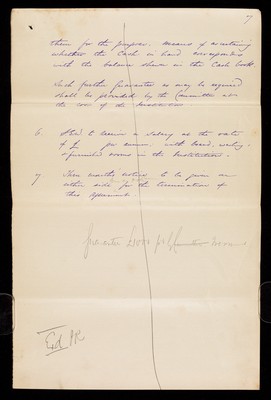 7
them for the purpose, means of ascertaining
whether the Cash in hand corresponds
with the balance shewn in the Cash book.
Such further Guarantee as may be required
shall be provided by the Committee at
the cost of the Institution
6. to receive a salary at the rate
of £ per annum. with board, washing &
furnished rooms in the Institution.
7. Three months notice to be given on
either side for the termination of
this Agreement.
Guarantee
Exd